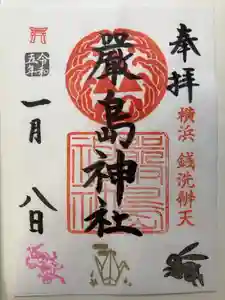 奉拝
横浜 銭洗辨天
嚴島神社
令和五年
一月八日